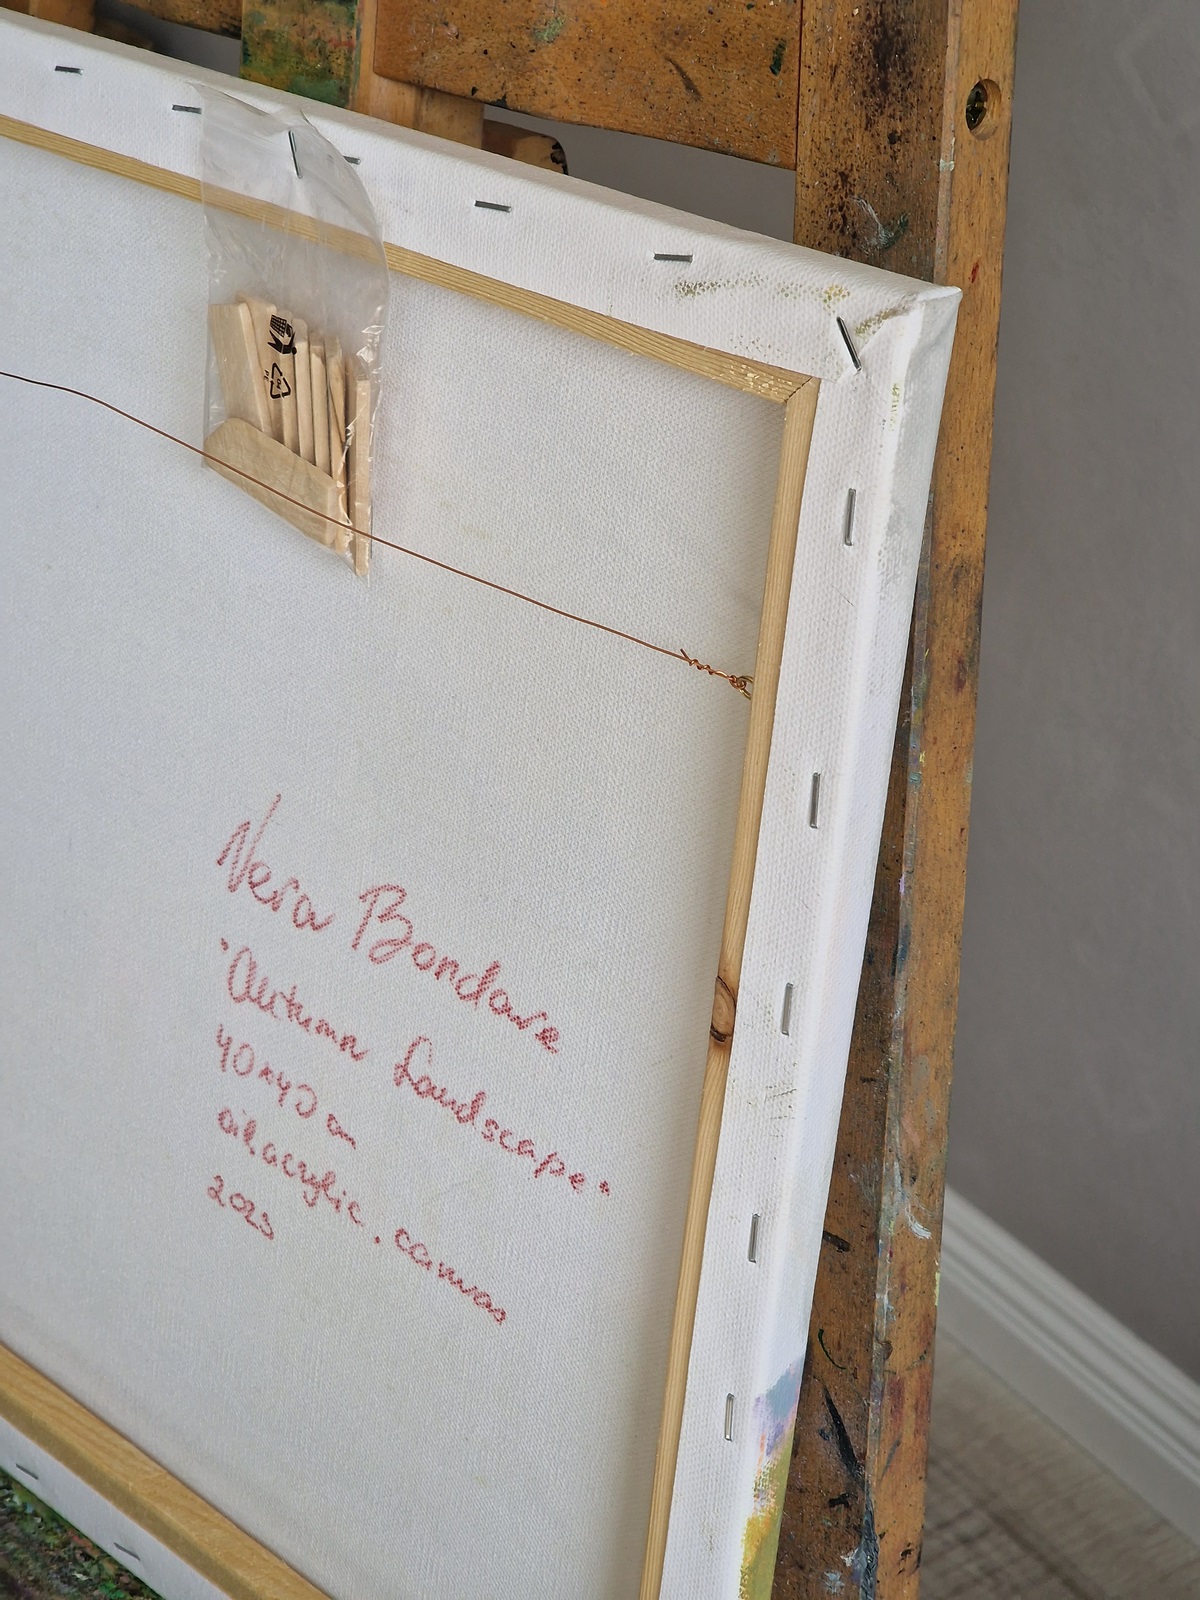 Vera Bondare
"Autumn Landscape"
40x40 cm
oil, acrylic, canvas
2023